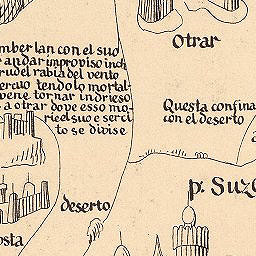 mber lan con el suo
r andar improviso inch
rudel rabia del vento
tendolo mortal-
vene tornar indrieso
a otrar dove esso mo-
rie el suo e serci
to se divise
Otrar
Questa confina
con el deserto
p: Suz
deserto
osta